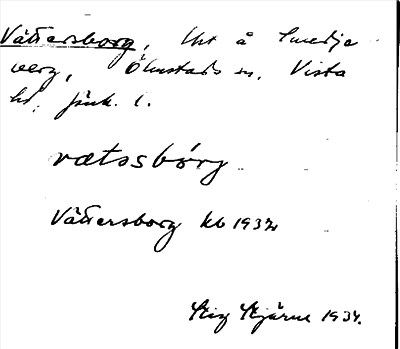 Vättersborg, lht å Smedje
verg, Ölmstads sn, Vista
hd, Jönk. l.
vætəsbórg
Vättersborg kb 1934
Stig Stjärne 1934.